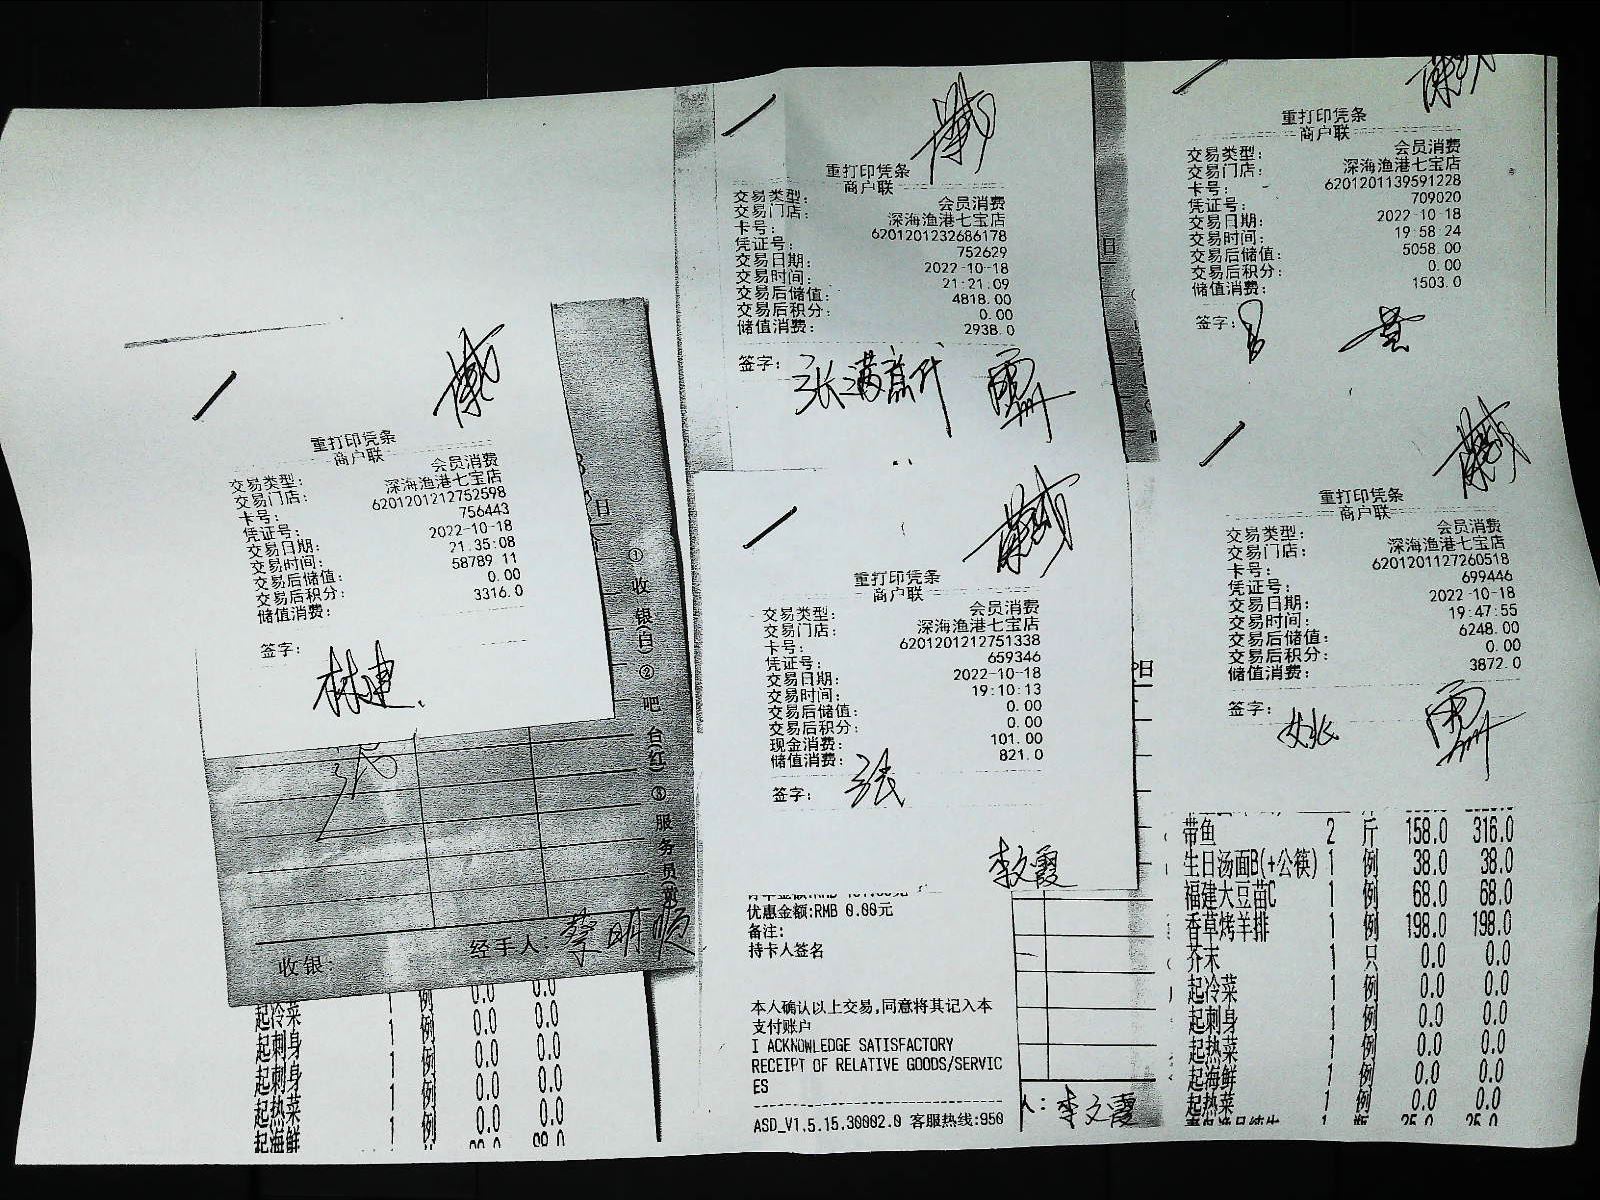 重打印凭条
商户联
交易类型: 会员消费
交易门店: 深海渔港七宝店
卡号: 6201201212752598
凭证号: 756443
交易日期: 2022-10-18
交易时间: 21:35:08
交易后储值: 58789.11
交易后积分: 0.00
储值消费: 3316.0
签字:
林建
①收银(白)②吧台(红)③服务员(黄)
经手人: 蔡明顺
收银:
起冷菜 1 例 0.0 0.0
起刺身 1 例 0.0 0.0
起刺身 1 例 0.0 0.0
起热菜 1 例 0.0 0.0
起海鲜 1 例
重打印凭条
商户联
交易类型: 会员消费
交易门店: 深海渔港七宝店
卡号: 6201201232686178
凭证号: 752629
交易日期: 2022-10-18
交易时间: 21:21:09
交易后储值: 4818.00
交易后积分: 0.00
储值消费: 2938.0
签字:
重打印凭条
商户联
交易类型: 会员消费
交易门店: 深海渔港七宝店
卡号: 6201201212751338
凭证号: 659346
交易日期: 2022-10-18
交易时间: 19:10:13
交易后储值: 0.00
交易后积分: 0.00
现金消费: 101.00
储值消费: 821.0
签字: 张
李文霞
优惠金额:RMB 0.00元
备注:
持卡人签名
本人确认以上交易,同意将其记入本
支付账户
I ACKNOWLEDGE SATISFACTORY
RECEIPT OF RELATIVE GOODS/SERVIC
ES
ASD_V1.5.15.30002.0 客服热线:950
人: 李文霞
重打印凭条
商户联
交易类型: 会员消费
交易门店: 深海渔港七宝店
卡号: 6201201139591228
凭证号: 709020
交易日期: 2022-10-18
交易时间: 19:58:24
交易后储值: 5058.00
交易后积分: 0.00
储值消费: 1503.0
签字: 黄
重打印凭条
商户联
交易类型: 会员消费
交易门店: 深海渔港七宝店
卡号: 6201201127260518
凭证号: 699446
交易日期: 2022-10-18
交易时间: 19:47:55
交易后储值: 6248.00
交易后积分: 0.00
储值消费: 3872.0
签字: 姚
带鱼 2 斤 158.0 316.0
生日汤面B(+公筷) 1 例 38.0 38.0
福建大豆苗C 1 例 68.0 68.0
香草烤羊排 1 例 198.0 198.0
芥末 1 只 0.0 0.0
起冷菜 1 例 0.0 0.0
起刺身 1 例 0.0 0.0
起热菜 1 例 0.0 0.0
起海鲜 1 例 0.0 0.0
起热菜 1 例 0.0 0.0